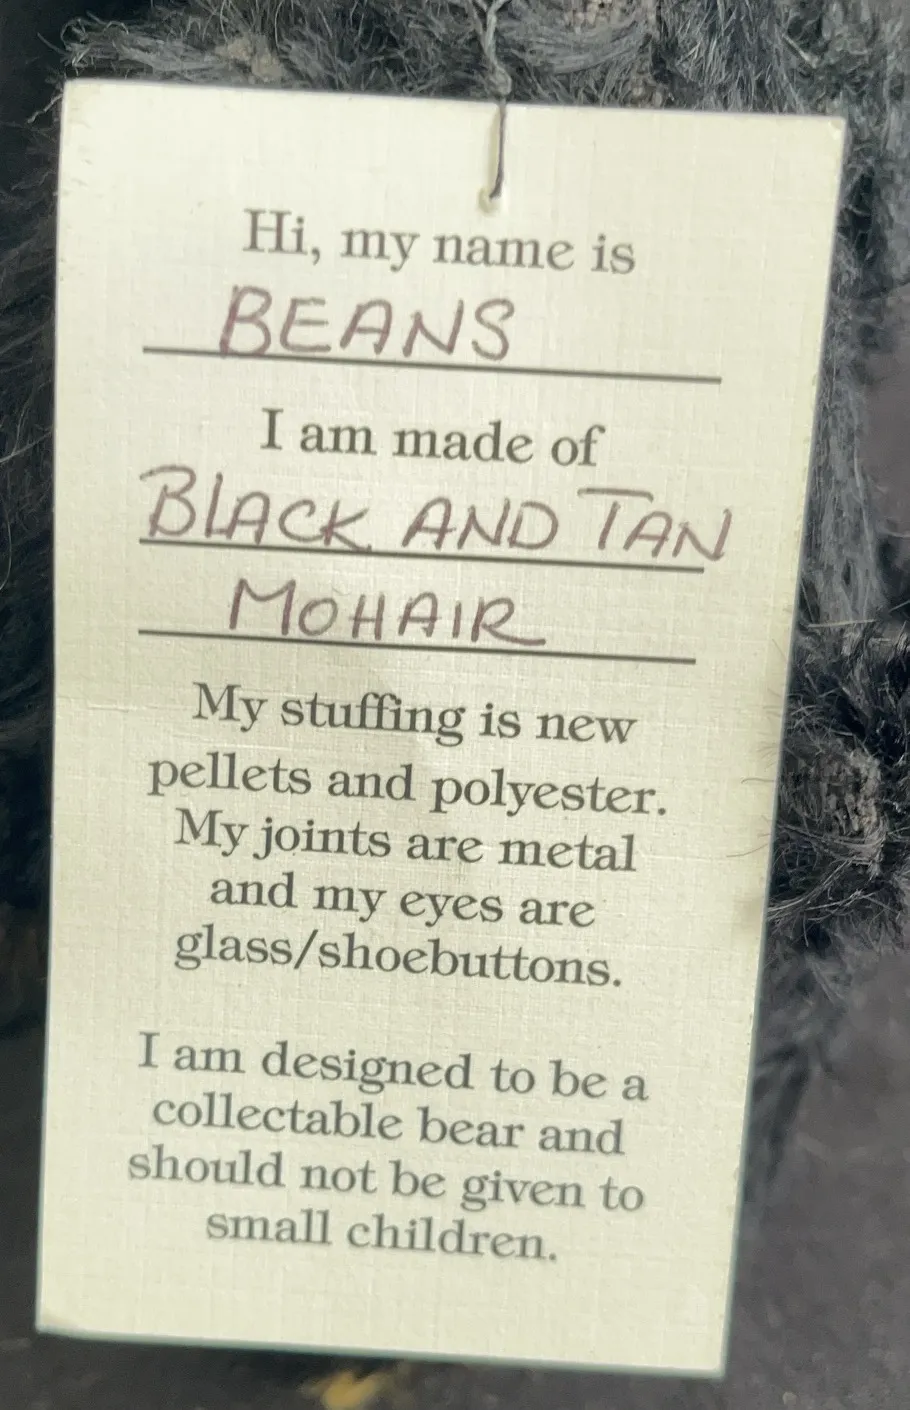 Hi, my name is
BEANS
I am made of
BLACK AND TAN
MOHAIR
My stuffing is new
pellets and polyester.
My joints are metal
and my eyes are
glass/shoebuttons.
I am designed to be a
collectable bear and
should not be given to
small children.